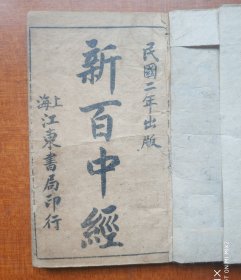 民國二年出版
新百中經
上海
江東書局印行